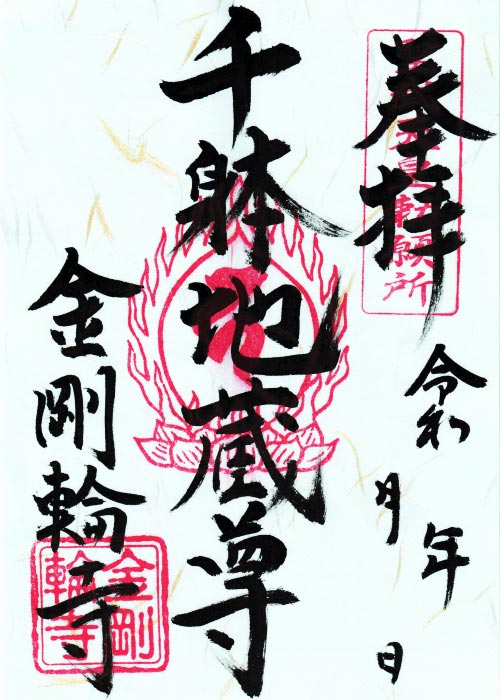 奉拝
令和 年
月 日
千躰地蔵尊
金剛輪寺
金剛
輪寺